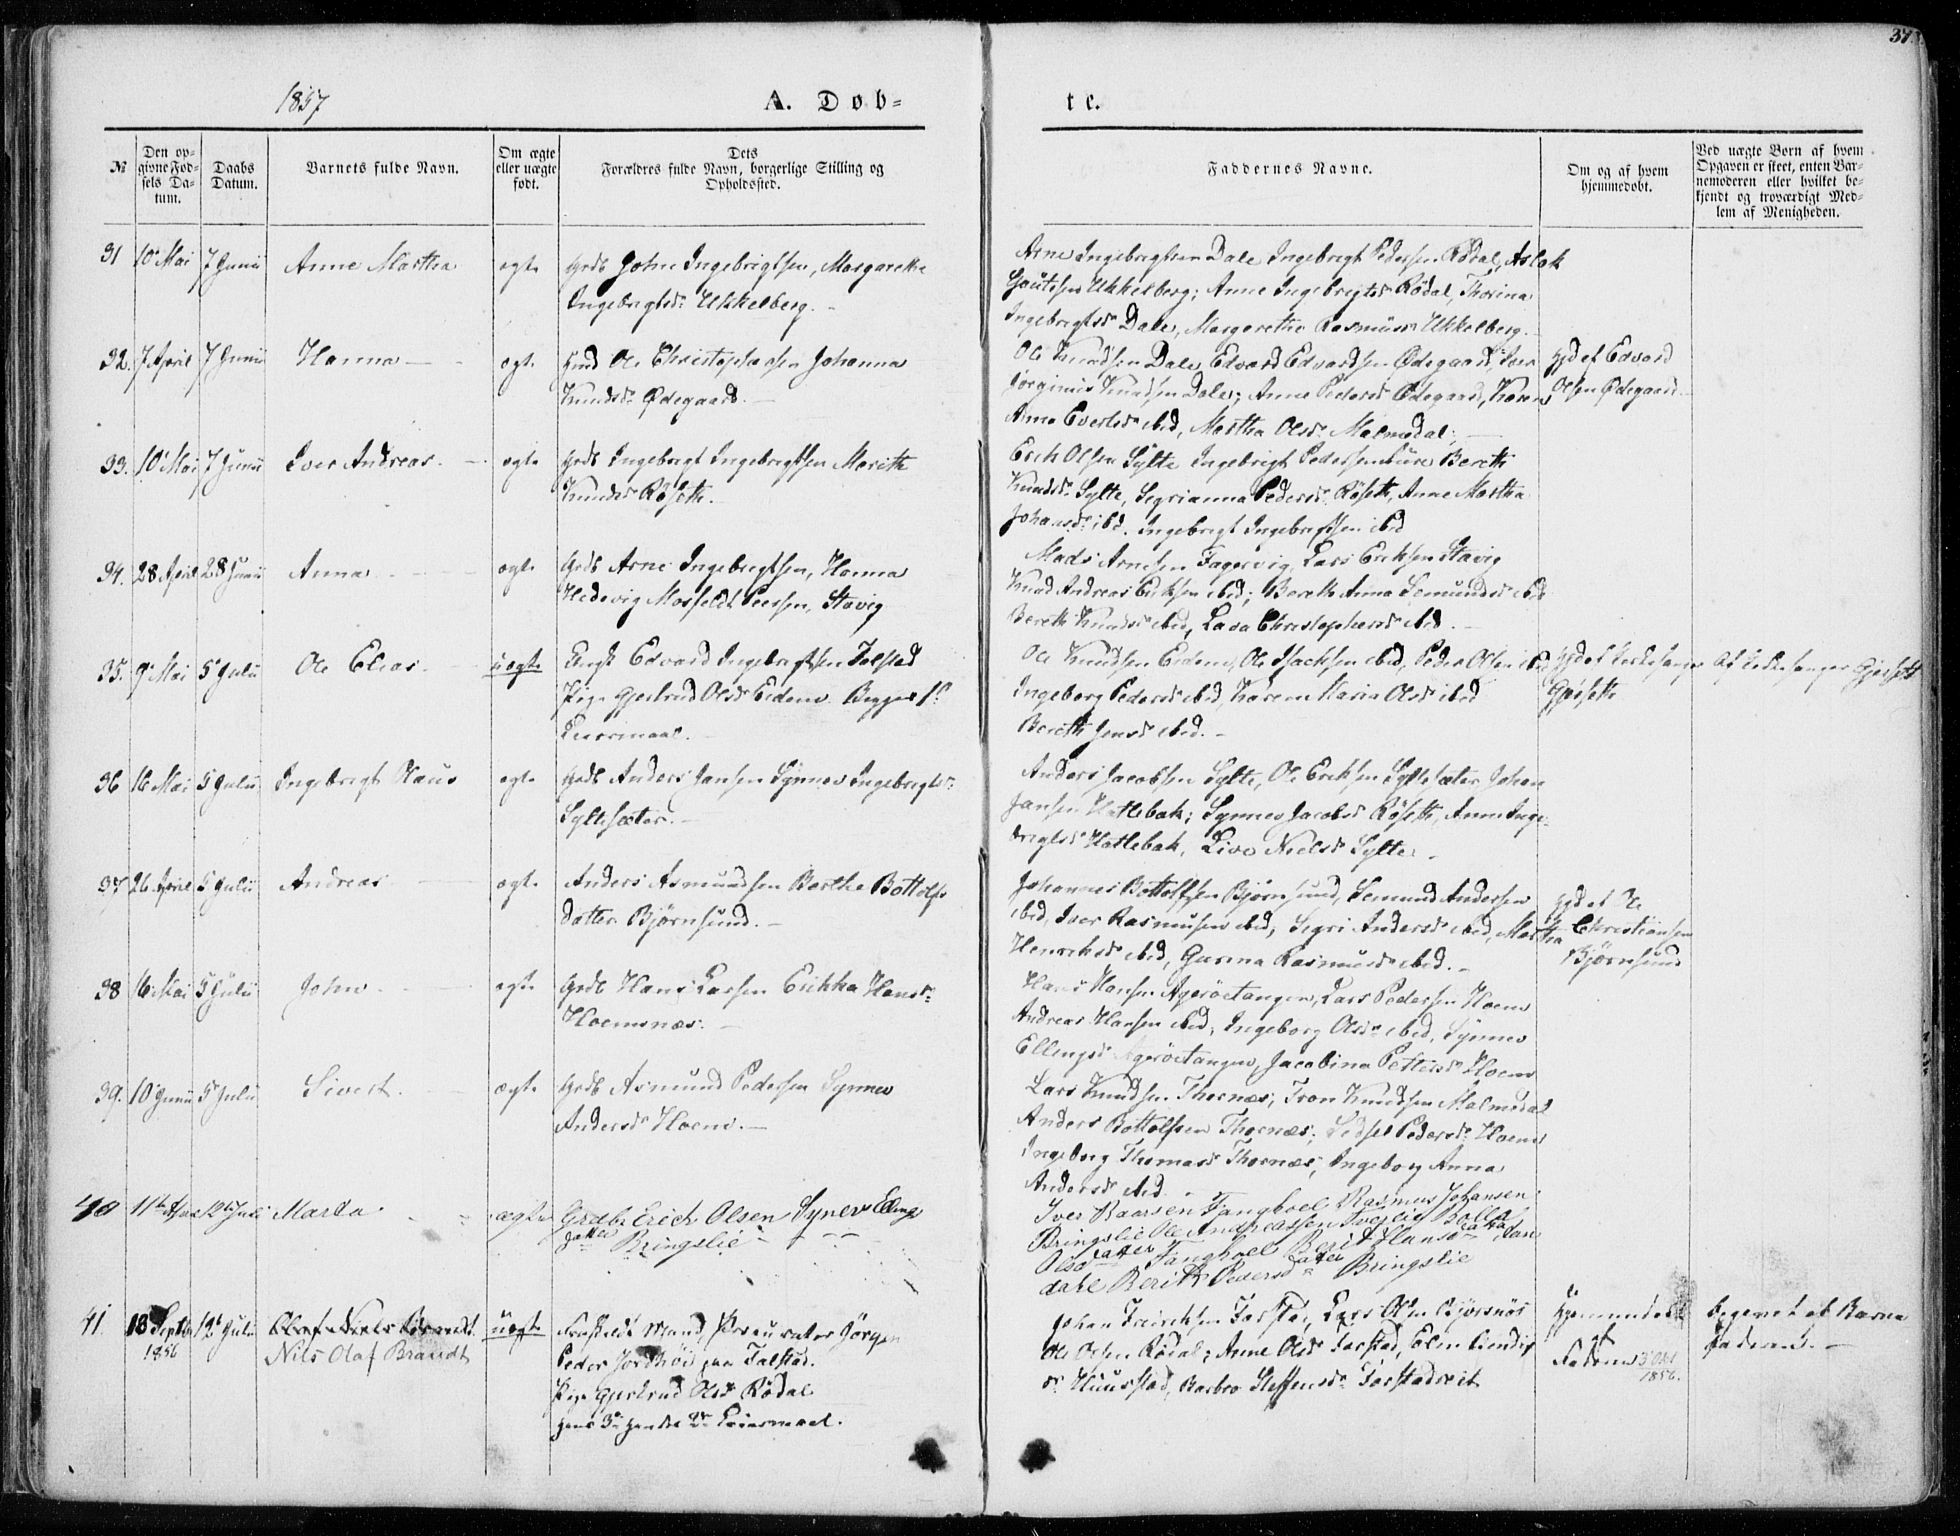 37.
1857
A. Døb-
te.
№
Den op-
givne Fød-
sels Da-
tum.
Daabs
Datum.
Barnets fulde Navn.
Om ægte
eller uægte
født.
Dets
Forældres fulde Navn, borgerlige Stilling og
Opholdssted.
Faddernes Navne.
Om og af hvem
hjemmedøbt.
Ved uægte Børn af hvem
Opgaven er skeet, enten Bar-
nemoderen eller hvilket be-
kjendt og troværdigt Med-
lem af Menigheden.
31 10 Mai 7 Junii Anne Martha ægte Grdb John Ingebrigtsen, Margarethe
Ingebrigtsdr Ukkelberg.
Arne Ingebrigtsen Dale Ingebrigt Pedersen Rødal, Aslak
Ukkelberg; Anne Ingebrigtsdr Rødal, Thorina
Ingebrigtsdr Dale, Margarethe Rasmusdr Ukkelberg.
32. 7 April 7 Junii Hanna ægte Ole Christophersen Johanna
Knudsdr Ødegaard.
Ole Knudsen Dale, Edvard Edvardsen Ødegaard, Iver
Jørginus Knudsen Dale; Anne Pedersdr Ødegaard, Karen
Anne ibid, Martha Olsdr Malmedal,
Hjd af Edvard
Olsen Ødegaard
33. 10 Mai 7 Junii Iver Andreas. ægte Grdb Ingebrigt Ingebrigtsen Marith
Knudsdr Røseth.
Erich Olsen Sylte Ingebrigt Pedersen Bereth
Knudsdr Sylte, Segrianna Pedersdr Røseth, Anne Martha
Johansdr ibd. Ingebrigt Ingebrigtsen ibid
34. 28 April 28 Junii Anna ægte Grdb Arne Ingebrigtsen, Hanna
Hedevig Mosfeldt Peersen, Stavig
Mads Arnesen Fagervig, Lars Eriksen Stavig
Knud Andreas Eriksen ibid; Bereth Anna Semundsdr ibid
Bereth Knudsdr ibid, Lava Christophersdr ibid.
35. 9 Mai 5 Julii Ole Elias. uægte Ungk Edvard Ingebrigtsen Talstad
Pige Gjertrud Olsdr Eidem Begges 1ste
Leiermaal.
Ole Knudsen Eidem, Ole Isachsen ibid, Peder Olsen ibid
Ingeborg Pedersdr ibid, Karen Maria Olsdr ibid
Bereth Jensdr ibid.
Hjd af Kirkesanger
Gjøseth
Af Kirkesanger Gjøseth
36 16 Mai 5 Julii Ingebrigt Olaus ægte Grdb Anders Jansen Synnev Ingebrigtsdr
Syltesæter.
Anders Jacobsen Sylte, Ole Eriksen Syltesæter Johan
Jansen Hatlebak; Synnev Jacobsdr Røseth, Anne Inge-
brigtsdr Hatlebak, Live Nielsdr Sylte.
37 26 April 5 Julii Andreas ægte Anders Asmundsen Berthe Bottolfs
datter Bjørnsund.
Johannes Bottolfsen Bjørnsund, Semund Andersen
ibid, Iver Rasmusen ibid, Segri Andersdr ibid, Martha
Henriksdr ibid, Gurina Rasmusdr ibid.
Hjd af Ole
Christiansen
Bjørnsund
38 16 Mai 5 Julii John ægte Grdb Hans Larsen Erikka Hansdr
Hoemsnæs.
Hans Hansen Agerøetangen, Lars Pedersen Hoem
Andreas Hansen ibid; Ingeborg Olsdr ibid, Synnev
Ellingsdr Agerøetangen, Jacobina Pettersdr Hoem
39. 10 Junii 5 Julii Sivert. ægte Grdb Asmund Pedersen Synnev
Andersdr Hoem.
Lars Knudsen Thornæs; Tron Knudsen Malmedal
Anders Bottolfsen Thornæs; Sidsel Pedersdr Hoem
Ingeborg Thomasdr Thornæs; Ingeborg Anna
Andersdr ibid.
40 11te April 12te Juli Marta ægte Grdb Erich Olsen Synev Elings
datter Bringslie
Iver Baarsen Tanghoel Rasmus Johansen
Bringslie Ole Andreassen Bolla
Olsdatter Tanghoel Berit Hansdatter
dahl Berith Pedersdatter Bringslie
41. 18 Septbr 1856 12te Julii Olaf Niels Brandt. uægte
Nils Olaf Brandt
Fraskildt Mand, Procurator Jørgen
Peder Jordhøi paa Talstad.
Pige Gjertrud Olsdr Rødal
hans 3die hendes 2det Leiermaal.
Johan Fredriksen Tarstad, Lars Olsen Bjørsnøs
Ole Olsen Rødal; Anne Olsdr Tarstad,
Huustad, Barbro Steffensdr Tarstadreit
Hjemmedøbt
af
Faderen 3 Okt
1856.
Begjæret af Barne
faderen.